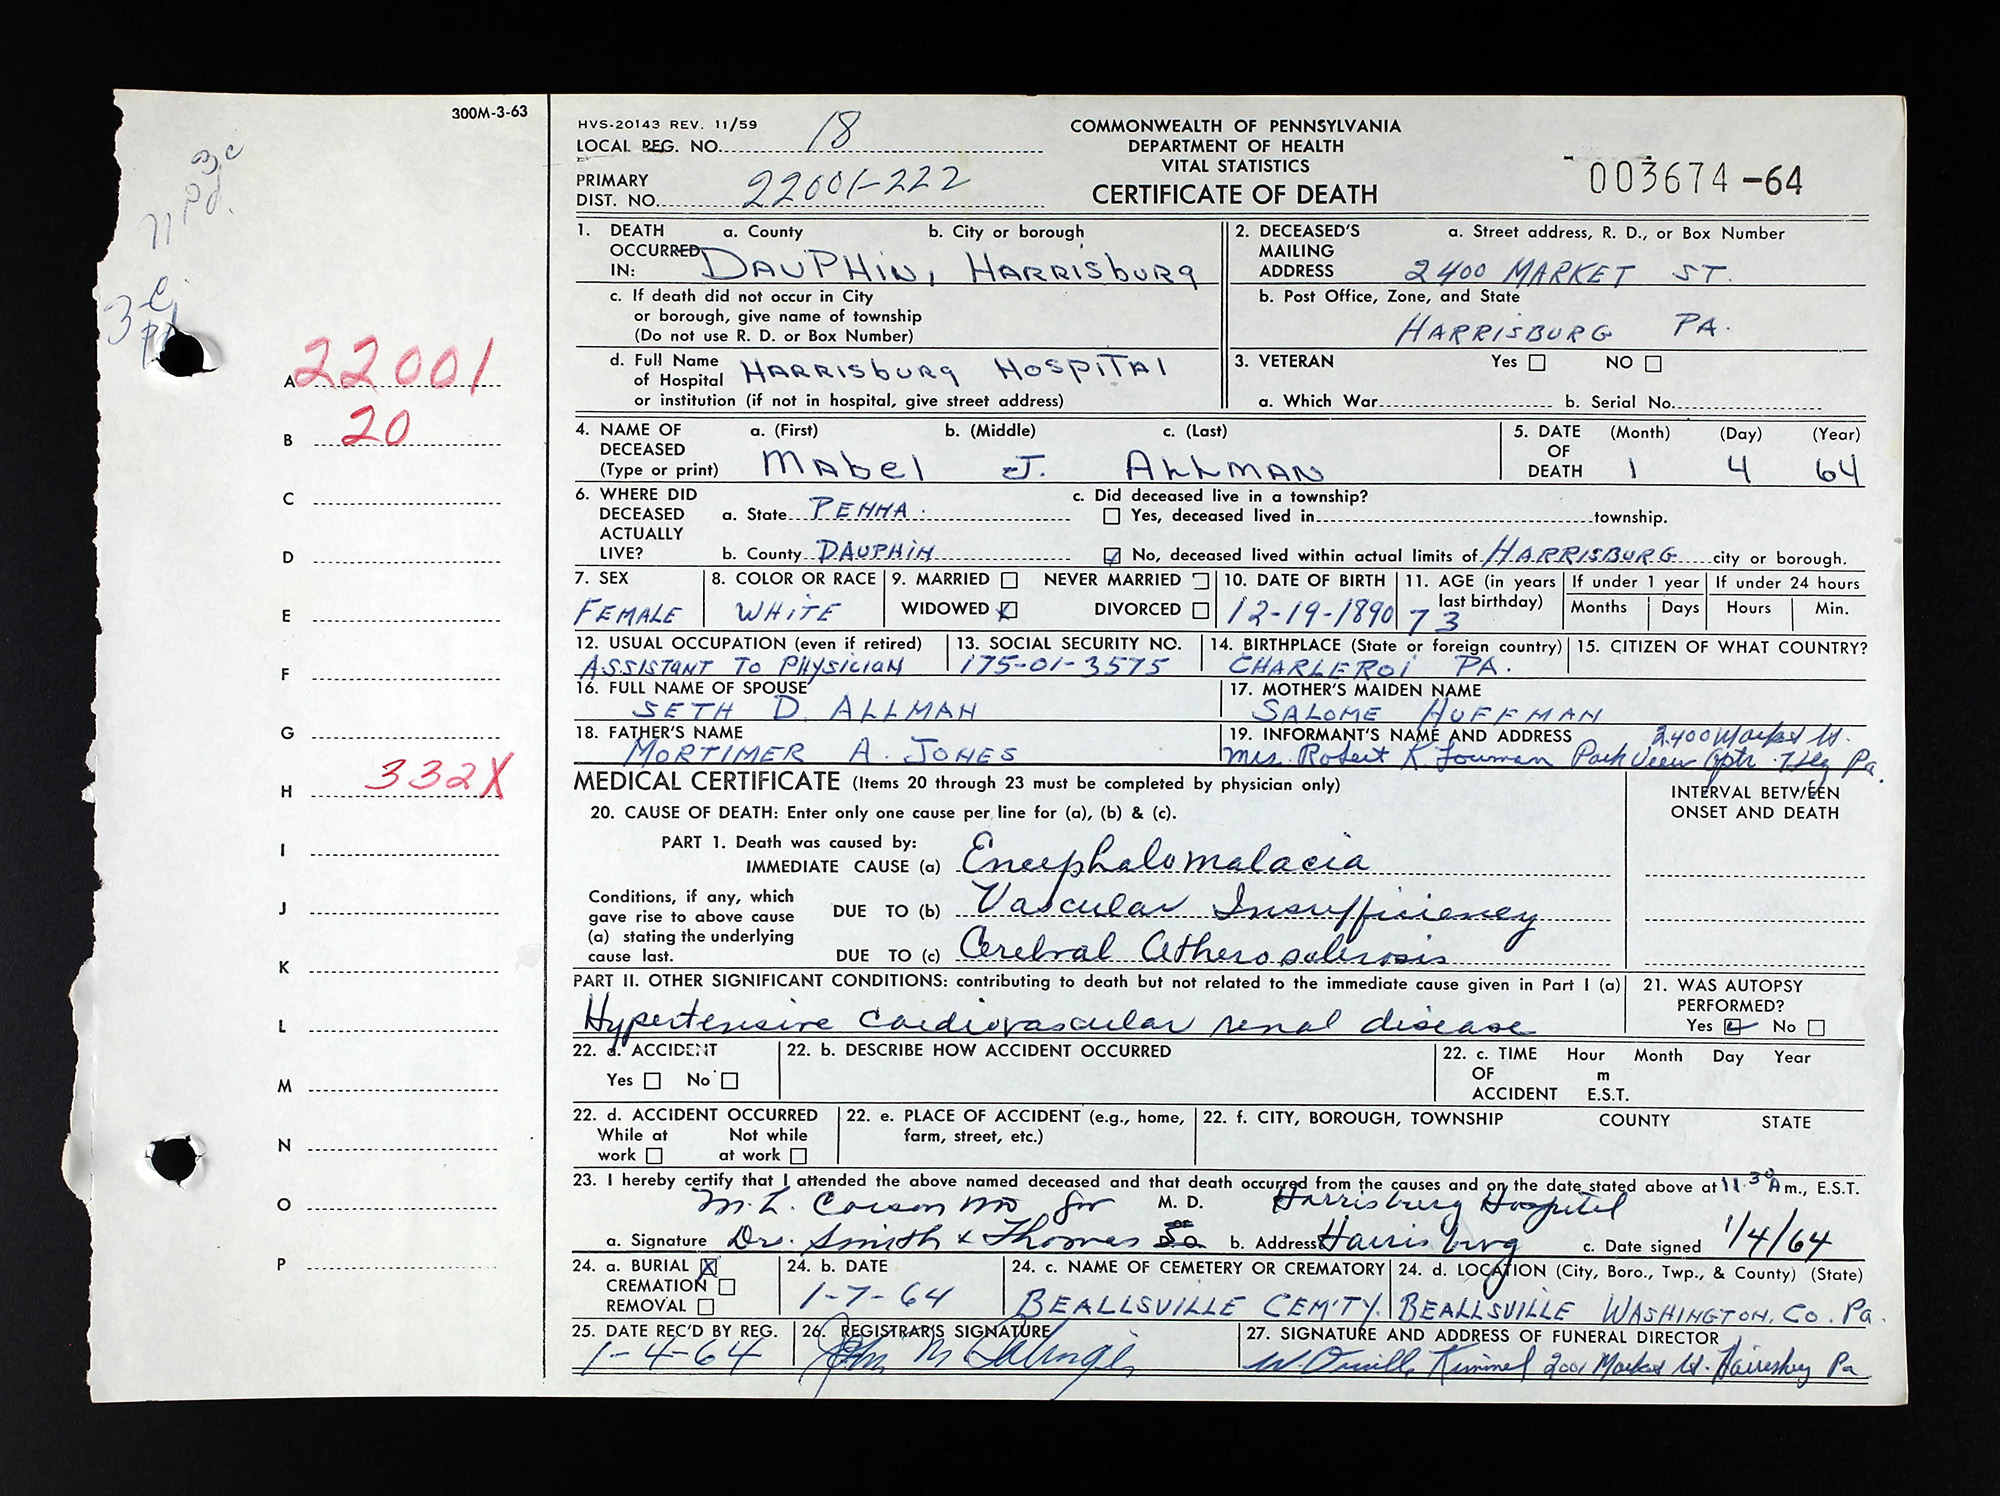 300M-3-63
3c
Pd.
HVS-20143 REV. 11/59
LOCAL REG. NO. 18
COMMONWEALTH OF PENNSYLVANIA
DEPARTMENT OF HEALTH
VITAL STATISTICS
CERTIFICATE OF DEATH
003674-64
PRIMARY
DIST. NO. 22001-222
1. DEATH OCCURRED IN: a. County b. City or borough
DAUPHIN, HARRISBURG
c. If death did not occur in City
or borough, give name of township
(Do not use R. D. or Box Number)
d. Full Name of Hospital HARRISBURG HOSPITAL
or institution (if not in hospital, give street address)
2. DECEASED'S MAILING ADDRESS a. Street address, R. D., or Box Number
2400 MARKET ST.
b. Post Office, Zone, and State
HARRISBURG PA.
3. VETERAN Yes NO
a. Which War b. Serial No.
4. NAME OF DECEASED (Type or print) a. (First) b. (Middle) c. (Last)
Mabel J. ALLMAN
5. DATE OF DEATH (Month) (Day) (Year)
1 4 64
6. WHERE DID DECEASED ACTUALLY LIVE?
a. State PENNA.
b. County DAUPHIN
c. Did deceased live in a township?
Yes, deceased lived in township.
No, deceased lived within actual limits of HARRISBURG city or borough.
7. SEX
FEMALE
8. COLOR OR RACE
WHITE
9. MARRIED NEVER MARRIED
WIDOWED X DIVORCED
10. DATE OF BIRTH
12-19-1890
11. AGE (in years last birthday)
73
If under 1 year
Months Days
If under 24 hours
Hours Min.
12. USUAL OCCUPATION (even if retired)
ASSISTANT TO PHYSICIAN
13. SOCIAL SECURITY NO.
175-01-3575
14. BIRTHPLACE (State or foreign country)
CHARLEROI PA.
15. CITIZEN OF WHAT COUNTRY?
16. FULL NAME OF SPOUSE
SETH D. ALLMAN
17. MOTHER'S MAIDEN NAME
SALOME HUFFMAN
18. FATHER'S NAME
MORTIMER A. JONES
19. INFORMANT'S NAME AND ADDRESS 2400 Market St.
Mrs. Robert K Park View Apts. Hbg Pa.
MEDICAL CERTIFICATE (Items 20 through 23 must be completed by physician only)
INTERVAL BETWEEN
ONSET AND DEATH
20. CAUSE OF DEATH: Enter only one cause per line for (a), (b) & (c).
PART 1. Death was caused by:
IMMEDIATE CAUSE (a) Encephalomalacia
Conditions, if any, which
gave rise to above cause
(a) stating the underlying
cause last.
DUE TO (b) Vascular Insufficiency
DUE TO (c) Cerebral Atherosclerosis
PART II. OTHER SIGNIFICANT CONDITIONS: contributing to death but not related to the immediate cause given in Part I (a)
Hypertensive cardiovascular renal disease
21. WAS AUTOPSY
PERFORMED?
Yes No
22. a. ACCIDENT
Yes No
22. b. DESCRIBE HOW ACCIDENT OCCURRED
22. c. TIME OF ACCIDENT Hour Month Day Year
m
E.S.T.
22. d. ACCIDENT OCCURRED
While at work Not while at work
22. e. PLACE OF ACCIDENT (e.g., home,
farm, street, etc.)
22. f. CITY, BOROUGH, TOWNSHIP COUNTY STATE
23. I hereby certify that I attended the above named deceased and that death occurred from the causes and on the date stated above at 11:30 A m., E.S.T.
M. L. Corson MD for M. D. Harrisburg Hospital
a. Signature Drs. Smith & Thomas or D.O. b. Address Harrisburg c. Date signed 1/4/64
24. a. BURIAL X
CREMATION
REMOVAL
24. b. DATE
1-7-64
24. c. NAME OF CEMETERY OR CREMATORY
BEALLSVILLE CEM'TY.
24. d. LOCATION (City, Boro., Twp., & County) (State)
BEALLSVILLE WASHINGTON. CO. Pa.
25. DATE REC'D BY REG.
1-4-64
26. REGISTRAR'S SIGNATURE
John M
27. SIGNATURE AND ADDRESS OF FUNERAL DIRECTOR
W Orville Kimmel 2001 Market St. Harrisburg Pa
A 22001
B 20
C
D
E
F
G
H 332X
I
J
K
L
M
N
O
P